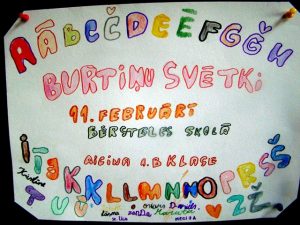 AĀBCČDEĒFGĢH
BURTIŅU SVĒTKI
11. FEBRUĀRĪ
BĒRSTELES SKOLĀ
AICINA 1.B KLASE
IĪJKĶLĻMNŅOPRSŠ
TUŪVZŽ